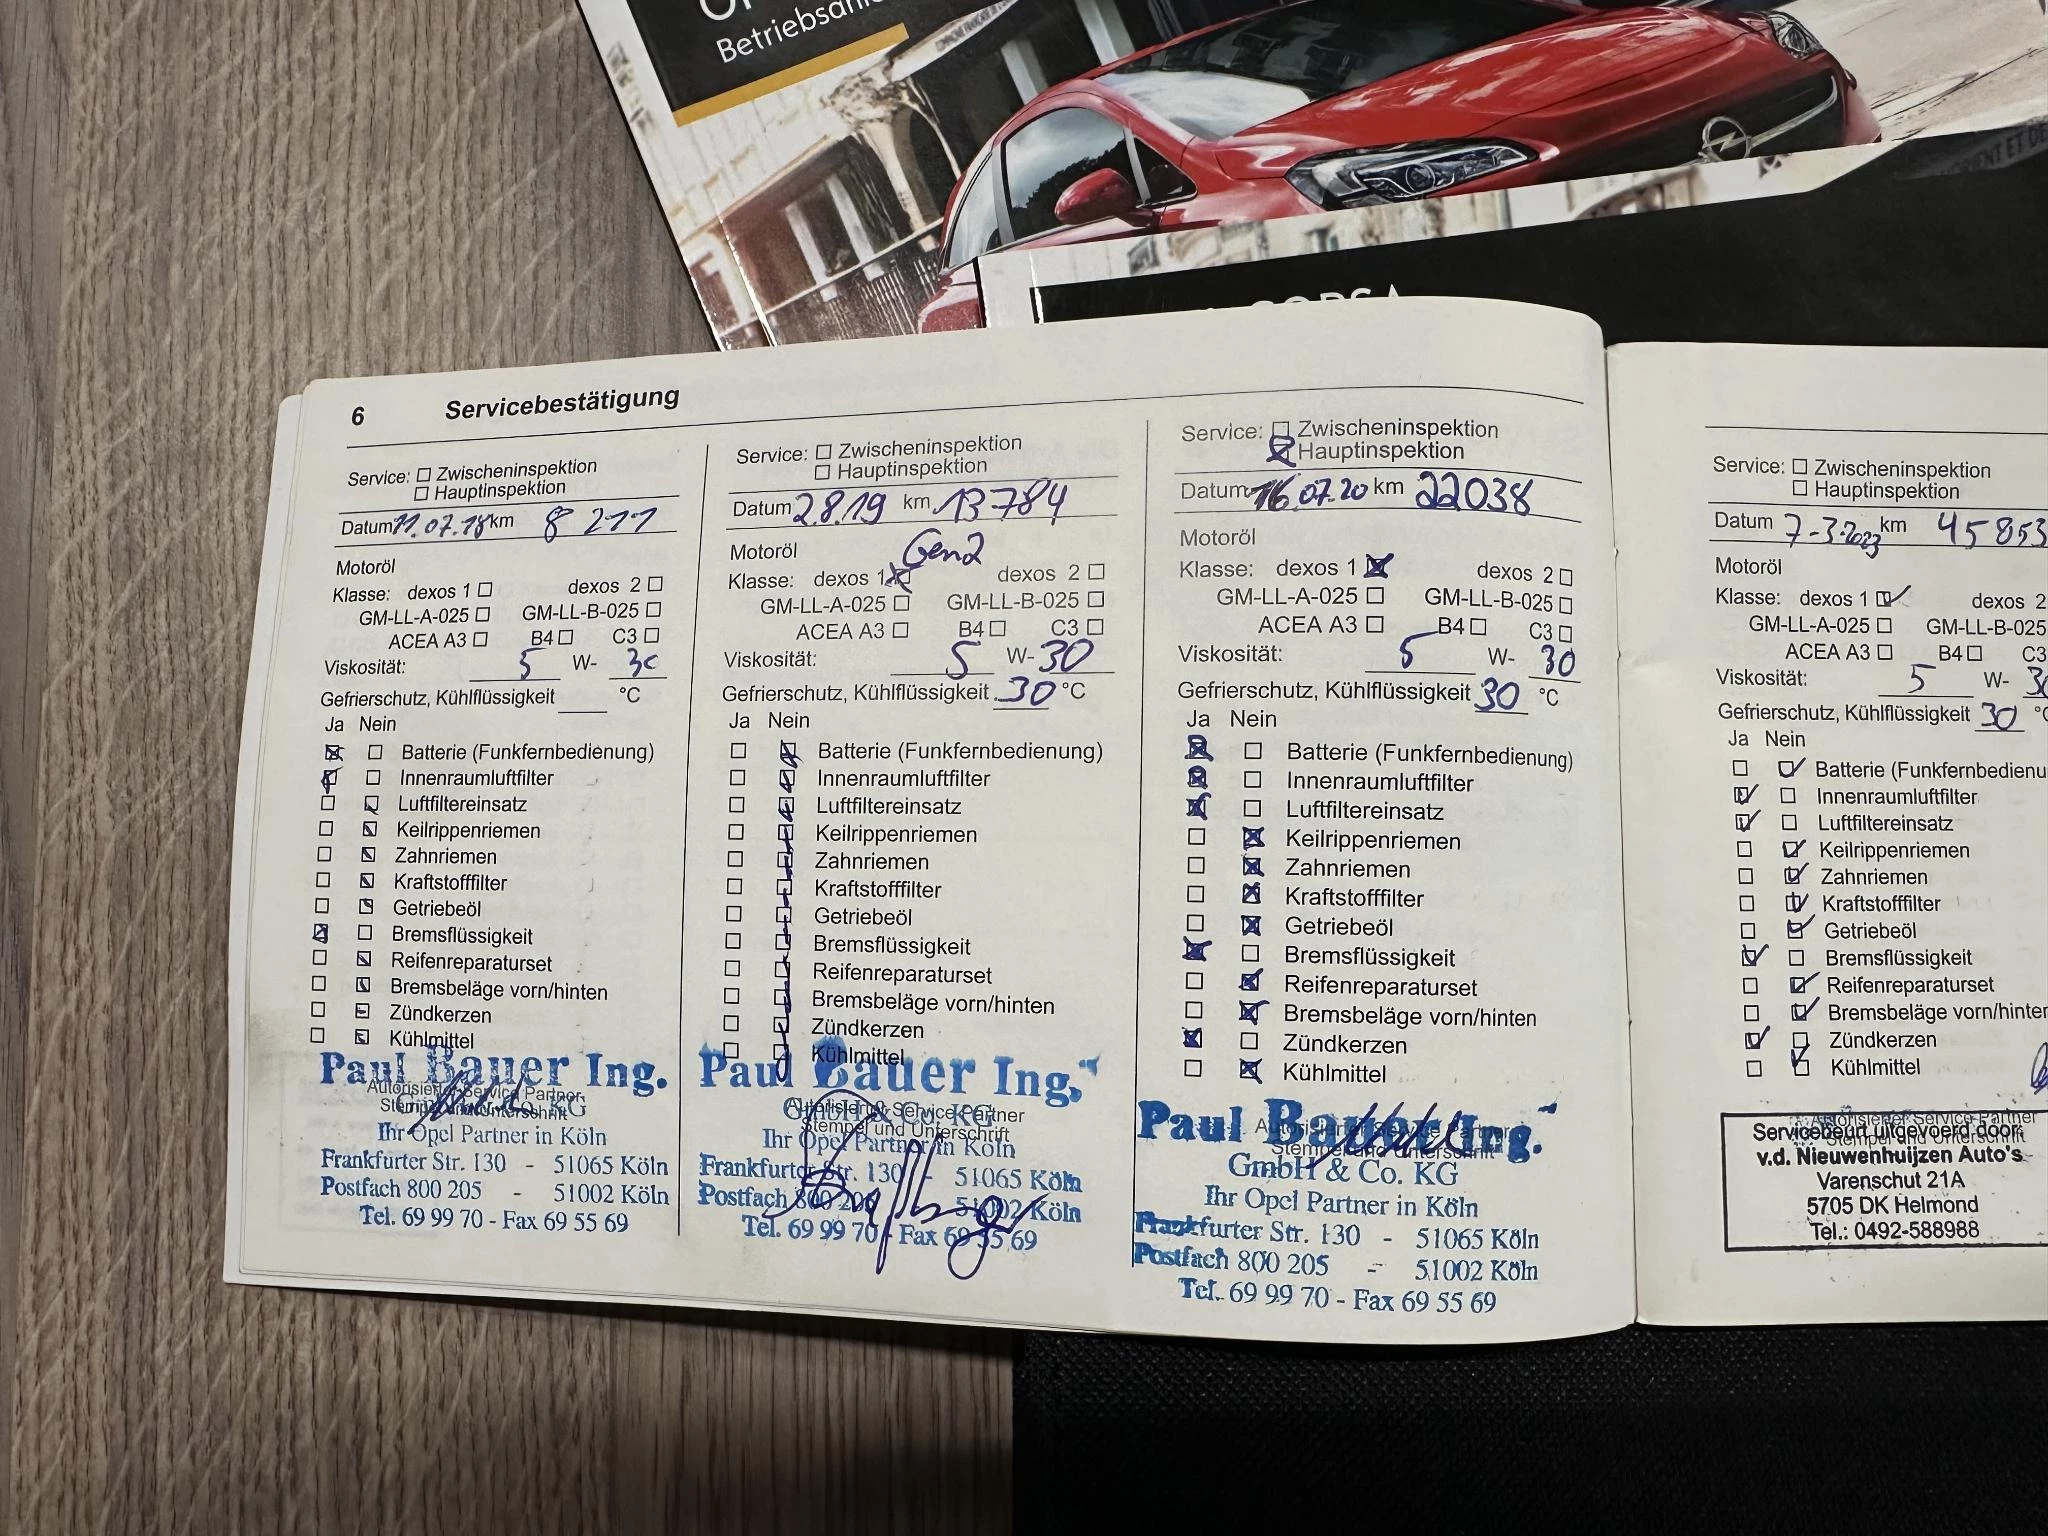 Betriebsanl
CORSA
6 Servicebestätigung
Service: Zwischeninspektion
Hauptinspektion
Datum 11.07.18 km 8 211
Motoröl
Klasse: dexos 1 dexos 2
GM-LL-A-025 GM-LL-B-025
ACEA A3 B4 C3
Viskosität: 5 W- 30
Gefrierschutz, Kühlflüssigkeit °C
Ja Nein
Batterie (Funkfernbedienung)
Innenraumluftfilter
Luftfiltereinsatz
Keilrippenriemen
Zahnriemen
Kraftstofffilter
Getriebeöl
Bremsflüssigkeit
Reifenreparaturset
Bremsbeläge vorn/hinten
Zündkerzen
Kühlmittel
Paul Bauer Ing.
Autorisierter Service Partner
Stempel und Unterschrift
Co. KG
Ihr Opel Partner in Köln
Frankfurter Str. 130 - 51065 Köln
Postfach 800 205 - 51002 Köln
Tel. 69 99 70 - Fax 69 55 69
Service: Zwischeninspektion
Hauptinspektion
Datum 2.8.19 km 13784
Motoröl Gen2
Klasse: dexos 1 dexos 2
GM-LL-A-025 GM-LL-B-025
ACEA A3 B4 C3
Viskosität: 5 W- 30
Gefrierschutz, Kühlflüssigkeit 30 °C
Ja Nein
Batterie (Funkfernbedienung)
Innenraumluftfilter
Luftfiltereinsatz
Keilrippenriemen
Zahnriemen
Kraftstofffilter
Getriebeöl
Bremsflüssigkeit
Reifenreparaturset
Bremsbeläge vorn/hinten
Zündkerzen
Kühlmittel
Paul Bauer Ing.
Autorisierter Service Partner
GmbH & Co. KG
Stempel und Unterschrift
Ihr Opel Partner in Köln
Frankfurter Str. 130 - 51065 Köln
Postfach 800 205 51002 Köln
Tel. 69 99 70 - Fax 69 55 69
Service: Zwischeninspektion
Hauptinspektion
Datum 16.07.20 km 22038
Motoröl
Klasse: dexos 1 dexos 2
GM-LL-A-025 GM-LL-B-025
ACEA A3 B4 C3
Viskosität: 5 W- 30
Gefrierschutz, Kühlflüssigkeit 30 °C
Ja Nein
Batterie (Funkfernbedienung)
Innenraumluftfilter
Luftfiltereinsatz
Keilrippenriemen
Zahnriemen
Kraftstofffilter
Getriebeöl
Bremsflüssigkeit
Reifenreparaturset
Bremsbeläge vorn/hinten
Zündkerzen
Kühlmittel
Paul Bauer Ing.
Autorisierter Service Partner
Stempel und Unterschrift
GmbH & Co. KG
Ihr Opel Partner in Köln
Frankfurter Str. 130 - 51065 Köln
Postfach 800 205 - 51002 Köln
Tel. 69 99 70 - Fax 69 55 69
Service: Zwischeninspektion
Hauptinspektion
Datum 7-3-2023 km 45853
Motoröl
Klasse: dexos 1 dexos 2
GM-LL-A-025 GM-LL-B-025
ACEA A3 B4 C3
Viskosität: 5 W- 30
Gefrierschutz, Kühlflüssigkeit 30 °C
Ja Nein
Batterie (Funkfernbedienu
Innenraumluftfilter
Luftfiltereinsatz
Keilrippenriemen
Zahnriemen
Kraftstofffilter
Getriebeöl
Bremsflüssigkeit
Reifenreparaturset
Bremsbeläge vorn/hinten
Zündkerzen
Kühlmittel
Autorisierter Service Partner
Servicebeurt uitgevoerd door:
Stempel und Unterschrift
v.d. Nieuwenhuijzen Auto's
Varenschut 21A
5705 DK Helmond
Tel.: 0492-588988